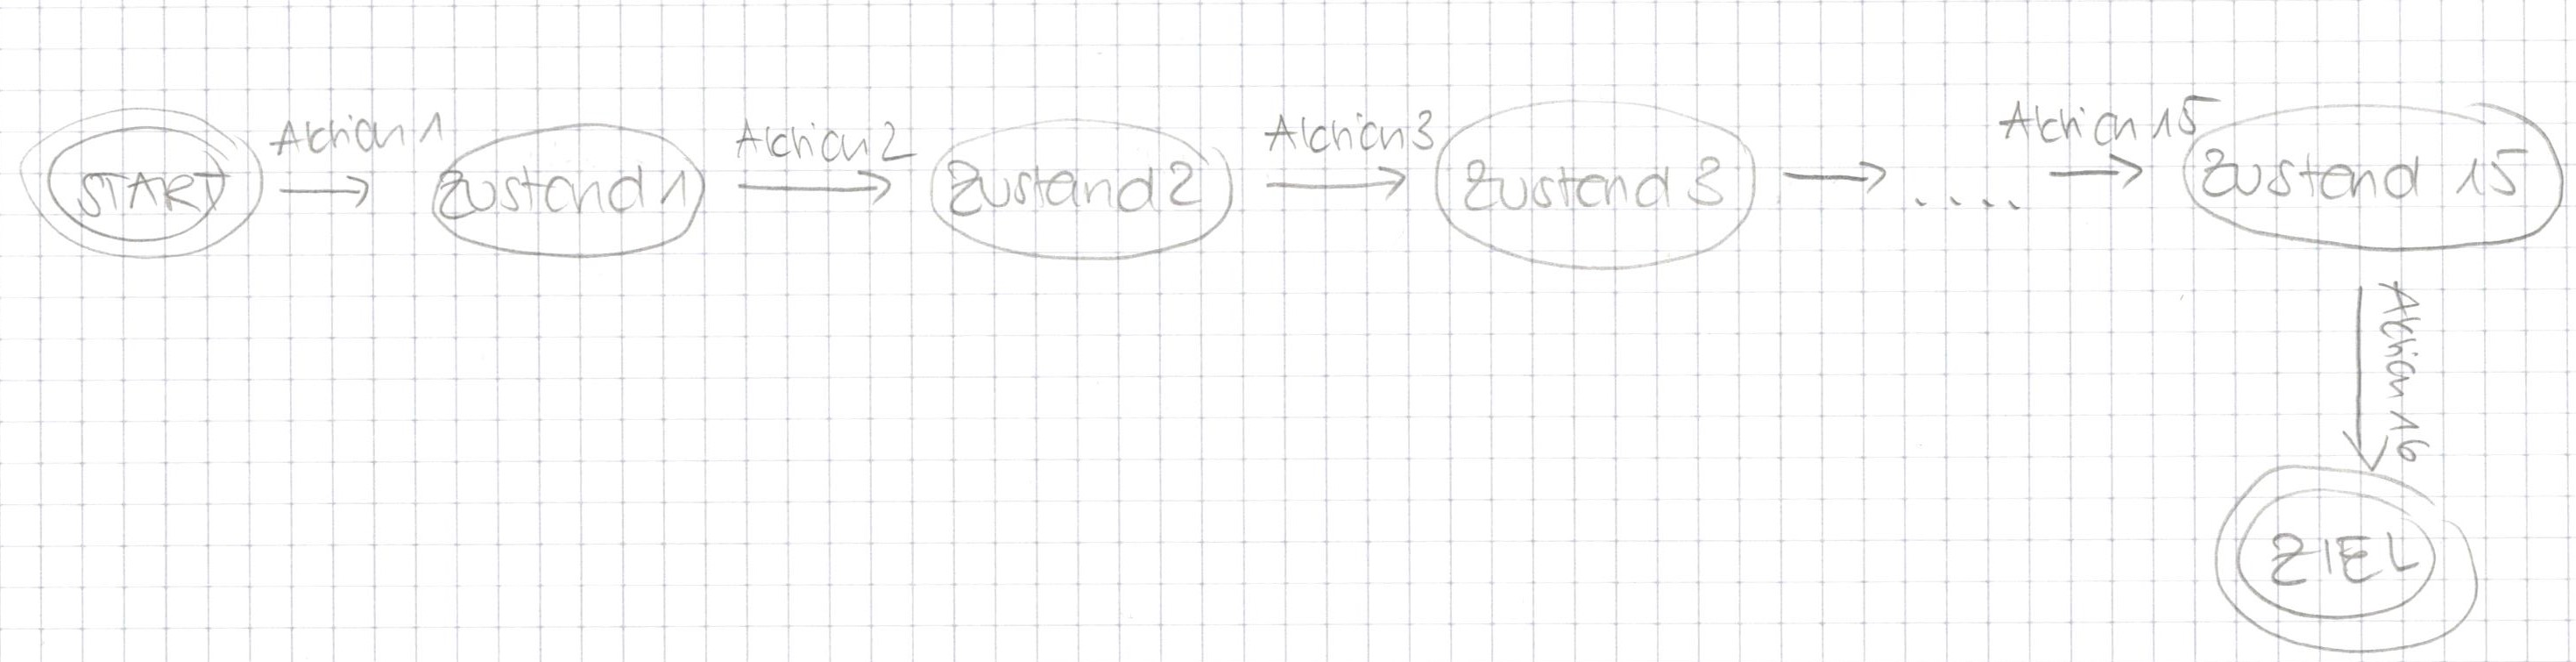 START
Aktion 1
Zustand 1
Aktion 2
Zustand 2
Aktion 3
Zustand 3
.....
Aktion 15
Zustand 15
Aktion 16
ZIEL